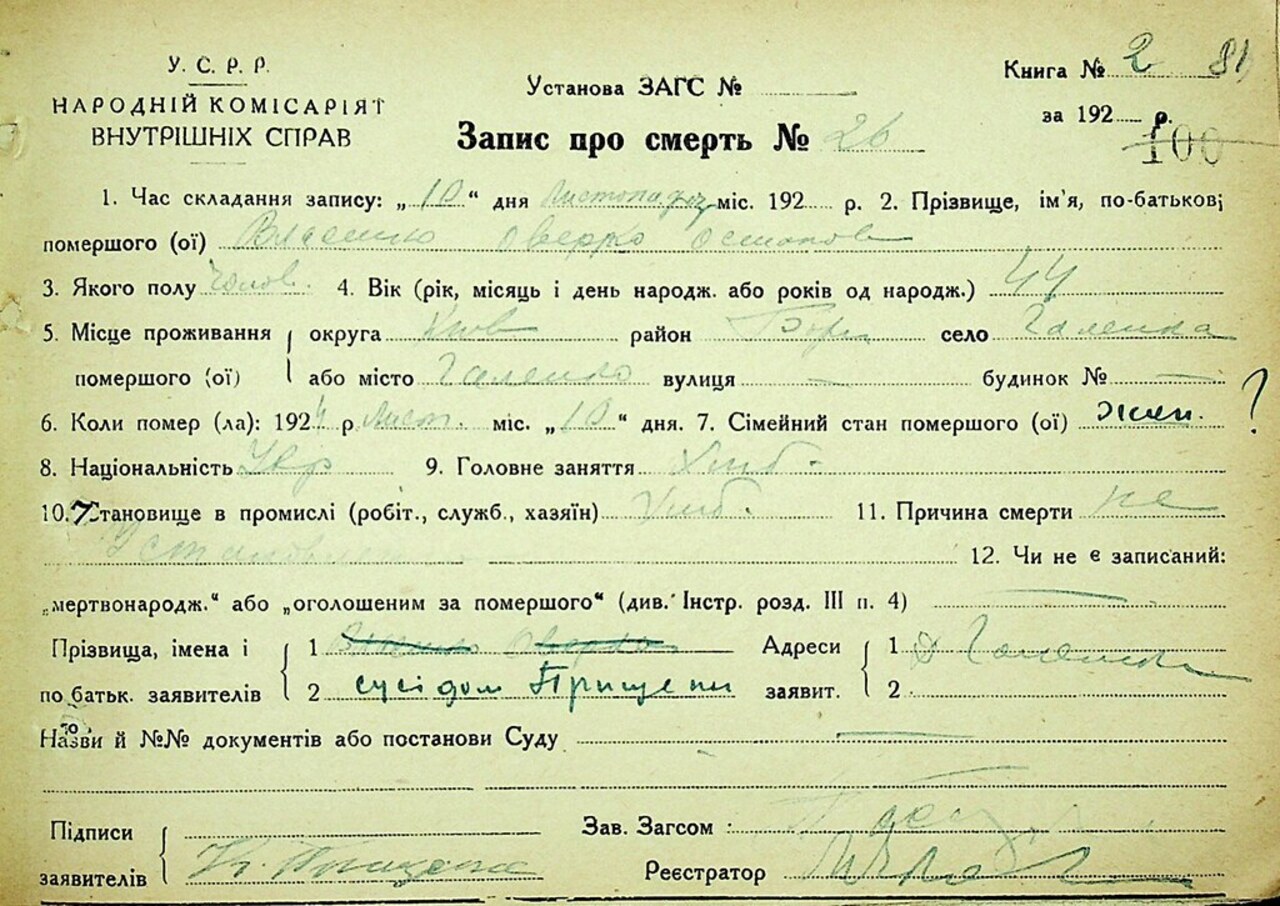 У. С. Р. Р.
НАРОДНІЙ КОМІСАРІЯТ
ВНУТРІШНІХ СПРАВ
Установа ЗАГС №
Книга № 2 81
за 192 р.
100
Запис про смерть № 26
1. Час складання запису: „10“ дня Листопада міс. 192 р. 2. Прізвище, ім'я, по-батькові
помершого (ої) Власенко Оверко Остапов
3. Якого полу Чолов. 4. Вік (рік, місяць і день народж. або років од народж.) 44
5. Місце проживання округа район село
помершого (ої) або місто вулиця — будинок № —
6. Коли помер (ла): 192 р Лист. міс. „10“ дня. 7. Сімейний стан помершого (ої) жен. ?
8. Національність Укр 9. Головне заняття Хліб.
10. Становище в промислі (робіт., служб., хазяїн) Хліб. 11. Причина смерти не
Установлено 12. Чи не є записаний:
„мертвонародж.“ або „оголошеним за помершого“ (див. Інстр. розд. III п. 4) —
Прізвища, імена і 1 Власенко Оверко Адреси 1
по батьк. заявителів 2 сусідом Прищепи заявит. 2
Назви й №№ документів або постанови Суду —
Підписи Зав. Загсом :
заявителів Прищепа Реєстратор